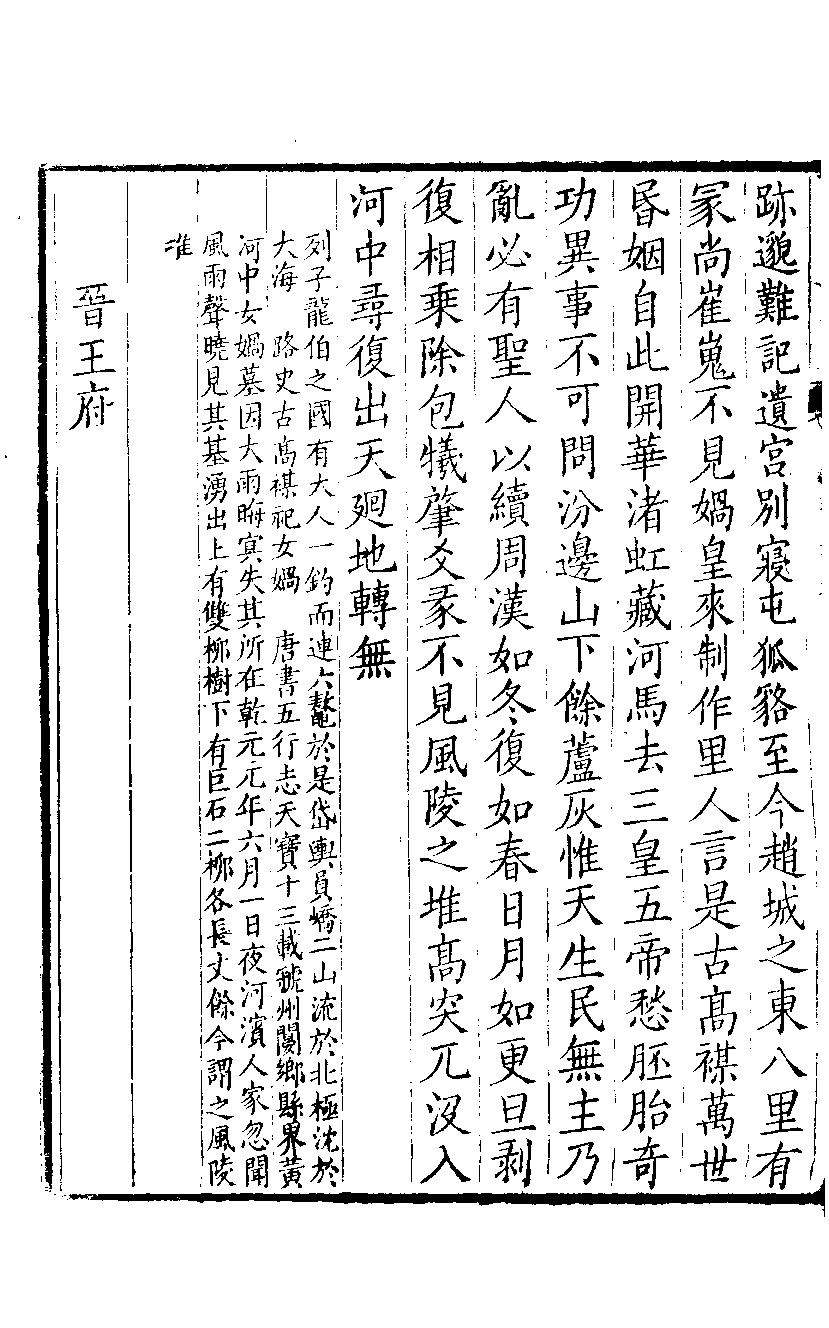 跡邈難記遺宮別寢屯狐貉至今趙城之東八里有
冡尚崔嵬不見媧皇來制作里人言是古高禖萬世
昏姻自此開華渚虹藏河馬去三皇五帝愁胚胎奇
功異事不可問汾邊山下餘蘆灰惟天生民無主乃
亂必有聖人以續周漢如冬復如春日月如更旦剥
復相乗除包犧肇爻彖不見風陵之堆高突兀沒入
河中尋復出天廻地轉無
列子龍伯之國有大人一釣而連六鼇於是岱輿員嶠二山流於北極沈於
大海　路史古高禖祀女媧　唐書五行志天寶十三載虢州閿鄉縣界黃
河中女媧墓因大雨晦冥失其所在乾元元年六月一日夜河濱人家忽聞
風雨聲曉見其墓湧出上有雙栁樹下有巨石二栁各長丈餘今謂之風陵
堆
晉王府